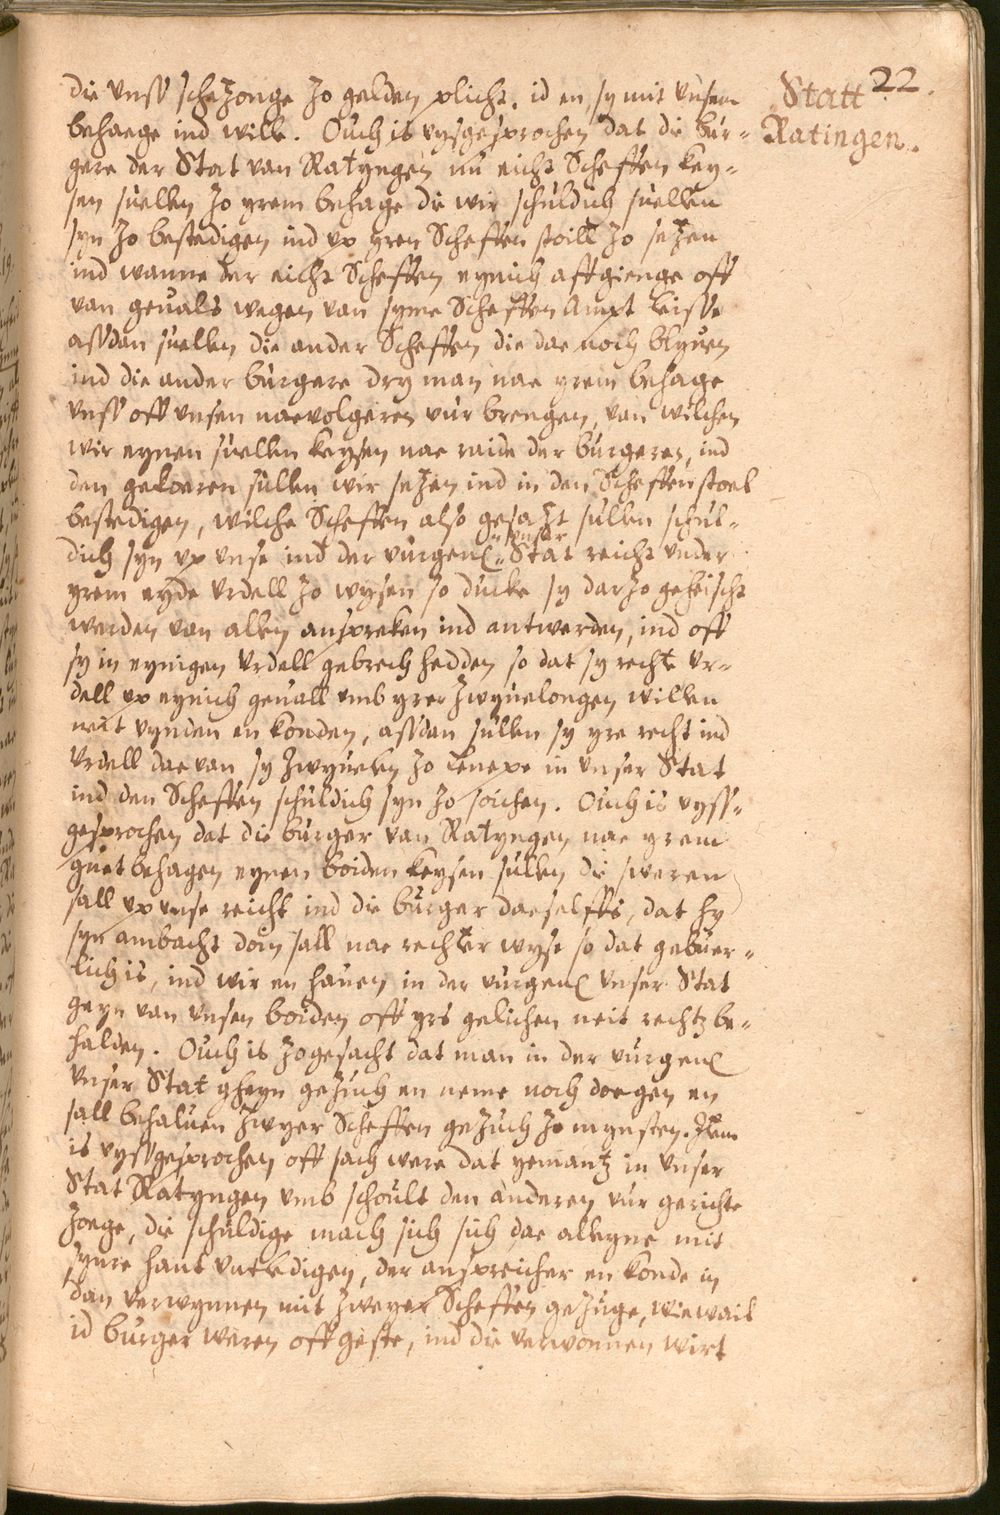 22.
Statt
Ratingen.
die vnss schezonge zo gelden plicht, id en sy mit vnsem
behaege ind wille. Ouch is vysgesprochen dat die bur-
gere der Stat van Ratyngen nu eicht Scheffen key-
sen suellen zo yrem behage die wir schuldich suellen
syn zo bestedigen ind vp yren Scheffen stoill zo sezen
ind wanne der eicht Scheffen eynich affgienge off
van geuals wegen van syme Scheffen Ampt leisse
assdan suellen die ander Scheffen die dae noch blyuen
ind die ander burgere dry man nae yrem behage
vnss off vnsen naevolgeren vur brengen, van wilchen
wir eynen suellen keysen nae raide der burgeren, ind
den gekoeren sullen wir sezen ind in den Scheffen stoel
bestedigen, wilche Scheffen also gesazt sullen schul-
dich syn vp vnse ind der vurgen. vnser Stat reicht vnder
yrem eyde vrdell zo wysen so ducke sy darzo geheischt
werden van allen anspreken ind antwerden, ind off
sy in eynigen vrdell gebrech hedden so dat sy recht vr-
dell vp eynich geuall vmb yrer zwyuelongen willen
neit vynden en konden, assdan sullen sy yre recht ind
vrdell dae van sy zwyuelen zo Lenepe in vnser Stat
ind den Scheffen schuldich syn zo soichen. Ouch is vyss-
gesprochen dat die burger van Ratyngen nae yrem
guet behagen eynen boiden keysen sullen, die sweren
sall vp vnse reicht ind die burger daeselffs, dat hy
syn ambacht doin sall nae rechter wyse so dat gebuer-
lich is, ind wir en hauen in der vurgen. vnser Stat
geyn van vnsen boiden off yrs gelichen neit rechtz be-
halden. Ouch is zogesacht dat man in der vurgen.
vnser Stat gheyn gezuch en neme noch doegen en
sall behaluen zwyer Scheffen gezuch zo mynsten. Item
is vyssgesprochen off sach were dat yemantz in vnser
Stat Ratyngen vmb schoult den anderen vur gerichte
zoege, die schuldige mach sich sich dae alleyne mit
synre hant vntledigen, der anspreicher en konde in
dan verwynnen mit zweyer Scheffen gezuge, wiewail
id burger weren off geste, ind die verwonnen wirt